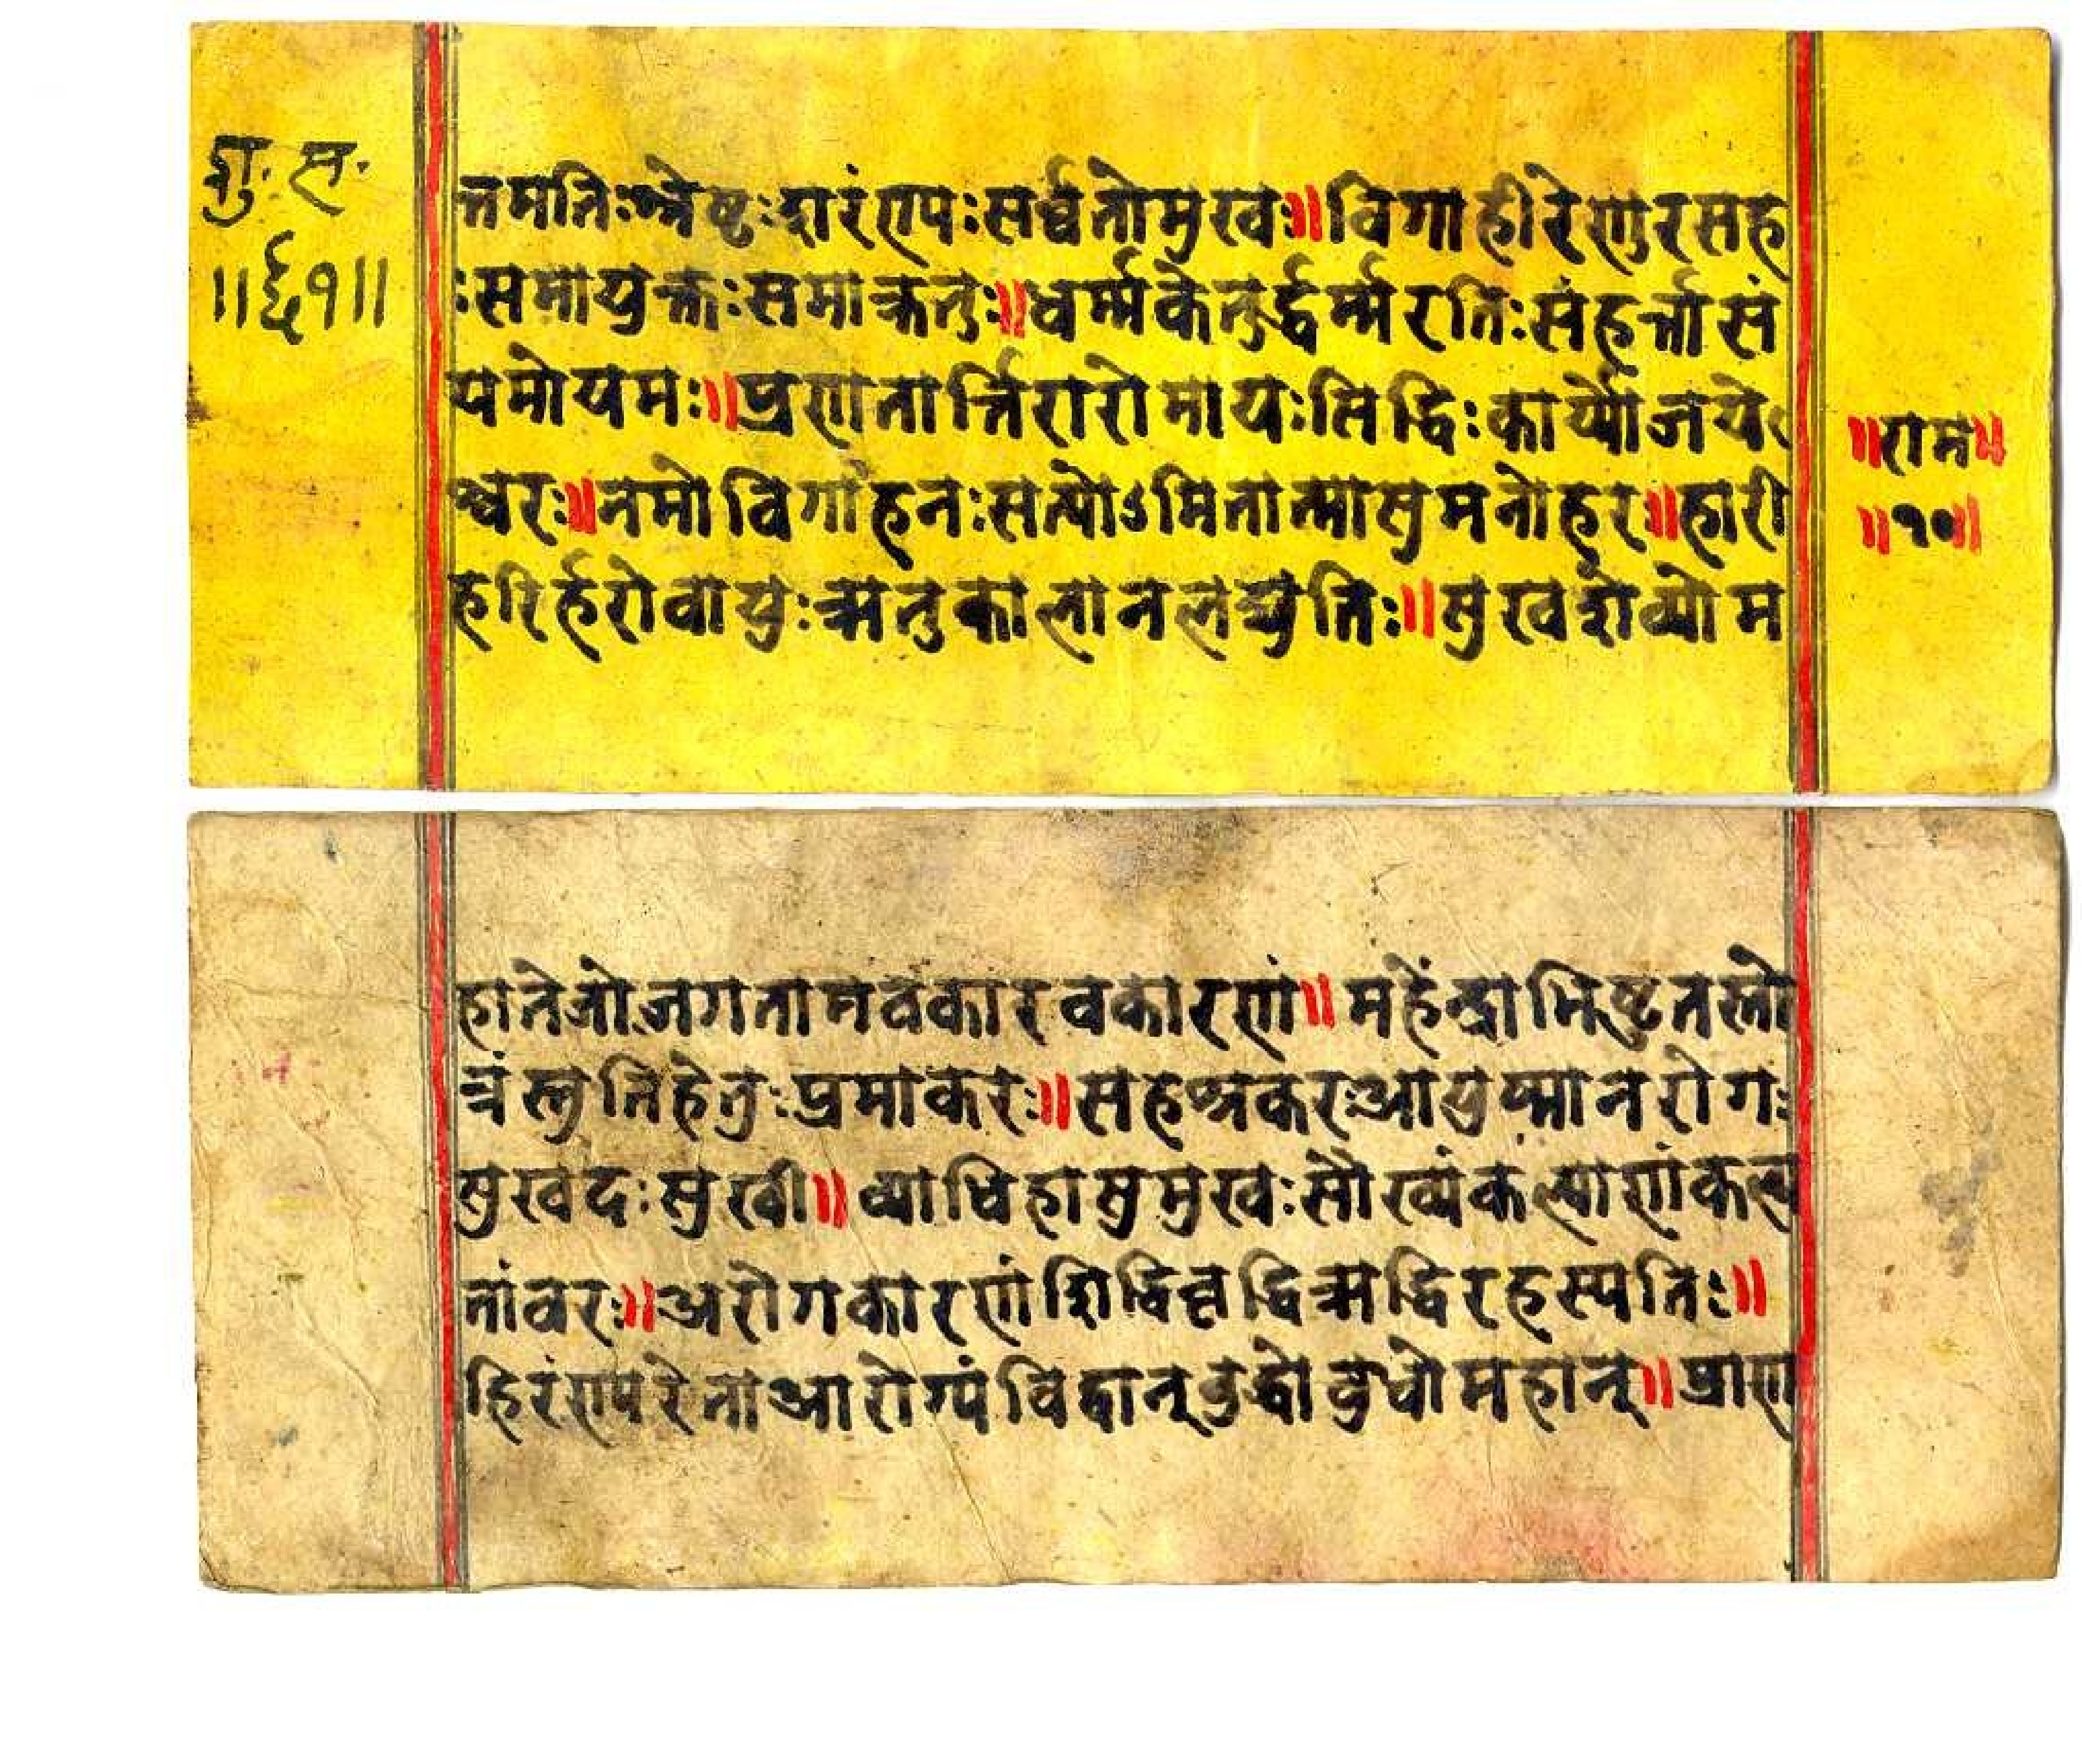 शु. स.
॥६१॥
त्तमतिःश्रेष्टःदारंएपःसर्व्वतोमुखः॥विगाहीरेणुरसह
ःसमायुक्तःसमाक्रतुः॥धर्म्मकेतुर्द्धर्म्मरतिःसंहर्त्तासं
यमोयमः॥प्रणतार्त्तिरारोमायःसिद्धिःकार्य्योजये
श्वरः॥नमोविगाहनःसत्योऽमितात्मासुमनोहर॥हारी
हरिर्हरोवायुःऋतुकालानलद्युतिः॥सुखशेव्योम
॥राम॥
॥१०॥
हातेजोजगतामवकारवकारणं॥महेंन्द्राभिष्टुतस्तो
त्रंस्तुतिहेतुःप्रभाकरः॥सहश्रकरःआयुष्मानरोगः
सुखदःसुखी॥व्याधिहासुमुखःसौख्यंकल्याणंकल्प
तांवरः॥अरोगकारणंशिद्धिवृद्धिऋद्धिरहस्पतिः॥
हिरंण्यरेताआरोग्यंविद्वान्बुद्धोबुधोमहान्॥प्राण